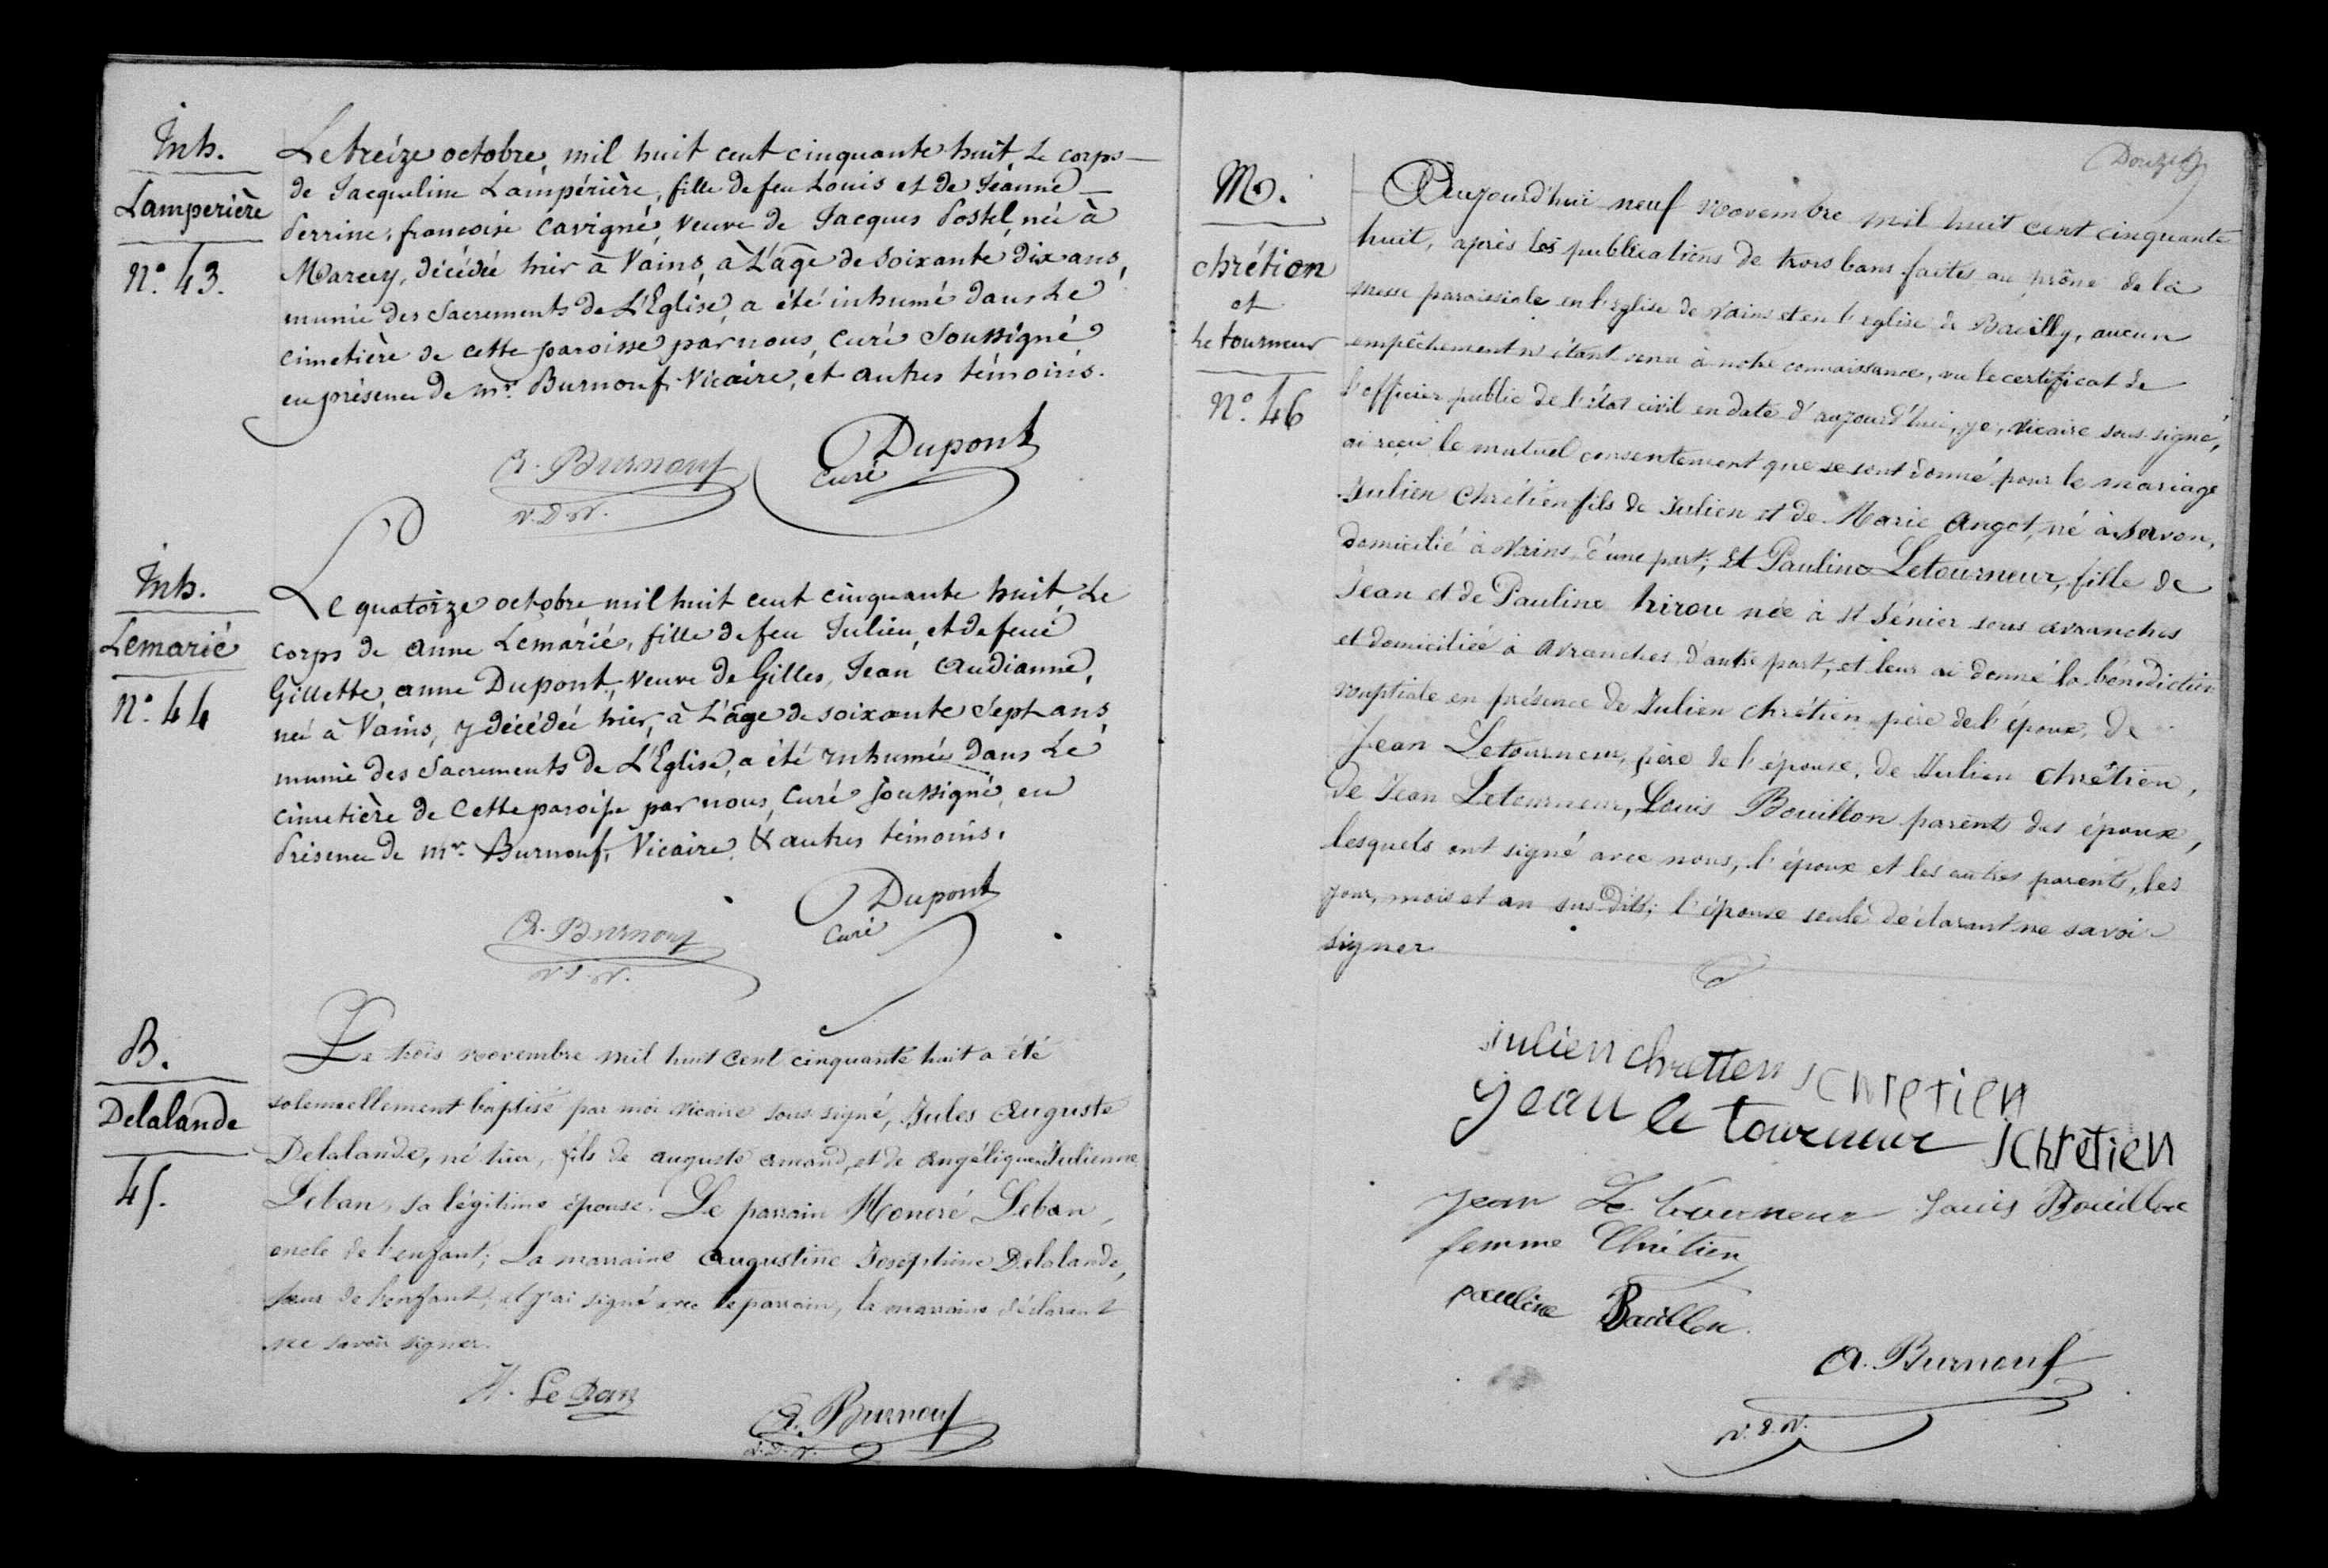 Inh.
Lamperière
N.° 43.
Le treize octobre, mil huit cent cinquante huit, Le corps
de Jacqueline Lampérière, fille de feu Louis et de Jéanne
Perrine, françoise Cavigné, veuve de Jacques Postel, née à
Marcey, décédée hier à Vains, à L'âge de soixante dix ans,
munie des Sacrements de L'Eglise, a été inhumé dans Le
cimetière de cette paroisse par nous, Curé Soussigné
en présence de mr. Burnouf, Vicaire, et autres témoins.
A. Burnouf
V. D. V.
Dupont
Curé
Inh.
Lemarié
N.° 44
Le quatorze octobre mil huit cent cinquante huit, Le
corps de anne Lemárié, fille de feu Julien, et de feue
Gillette, anne Dupont, veuve de Gilles, Jean Audianne,
née à Vains, y décédée hier, à L'âge de soixante sept ans,
munie des Sacrements de L'Eglise, a été inhumée dans Le
cimetière de Cette paroisse par nous, Curé soussigné, en
présence de mr. Burnouf, Vicaire, & autres témoins.
A. Burnouf
Dupont
Curé
B.
Delalande
45.
Le trois novembre mil huit cent cinquante huit a été
solennellement baptisé par moi vicaire sous signé, Jules Auguste
Delalande, né hier, fils de auguste amand, et de Angélique Julienne
Leban, sa légitime épouse. Le parrain Honoré Leban,
oncle de l'enfant; La marraine Augustine Joséphine Delalande,
sœur de l'enfant, et j'ai signé avec le parrain, la marraine déclarant
ne savoir signer.
H. Le Ban
A. Burnouf
V. D. V.
Douze
M.
chrétien
et
Le tourneur
N.° 46
Aujourd'hui neuf novembre mil huit cent cinquante
huit, après les publications de trois bans faites au prône de la
messe paroissiale en l'église de Vains et en l'eglise de Bacilly, aucun
empêchement n'étant venu à notre connaissance, vu le certificat de
l'officier public de l'état civil en date d'aujourd'hui, je, vicaire sous-signé,
ai reçu le mutuel consentement que se sont donné pour le mariage
Julien Chrétien fils de Julien et de Marie Angot, né à Servon,
domicilié à Vains, d'une part; Et Pauline Letourneur, fille de
Jean et de Pauline hirou née à St Sénier sous avranches
et domiciliée à Avranches, d'autre part, et leur ai donné la bénédiction
nuptiale en présence de Julien chrétien père de l'époux, de
Jean Letourneur, père de l'épouse, de Julien chrétien,
de Jean Letourneur, Louis Bouillon parents des époux,
lesquels ont signé avec nous, l'époux et les autres parents, les
jour, mois et an sus dits; l'épouse seule déclarant ne savoi
signer
Julien chretten J chretien
jean le tourneur J chrétien
jean Le tourneur Louis Bouillon
femme Chrétien
pauline Bouillon
A. Burnouf